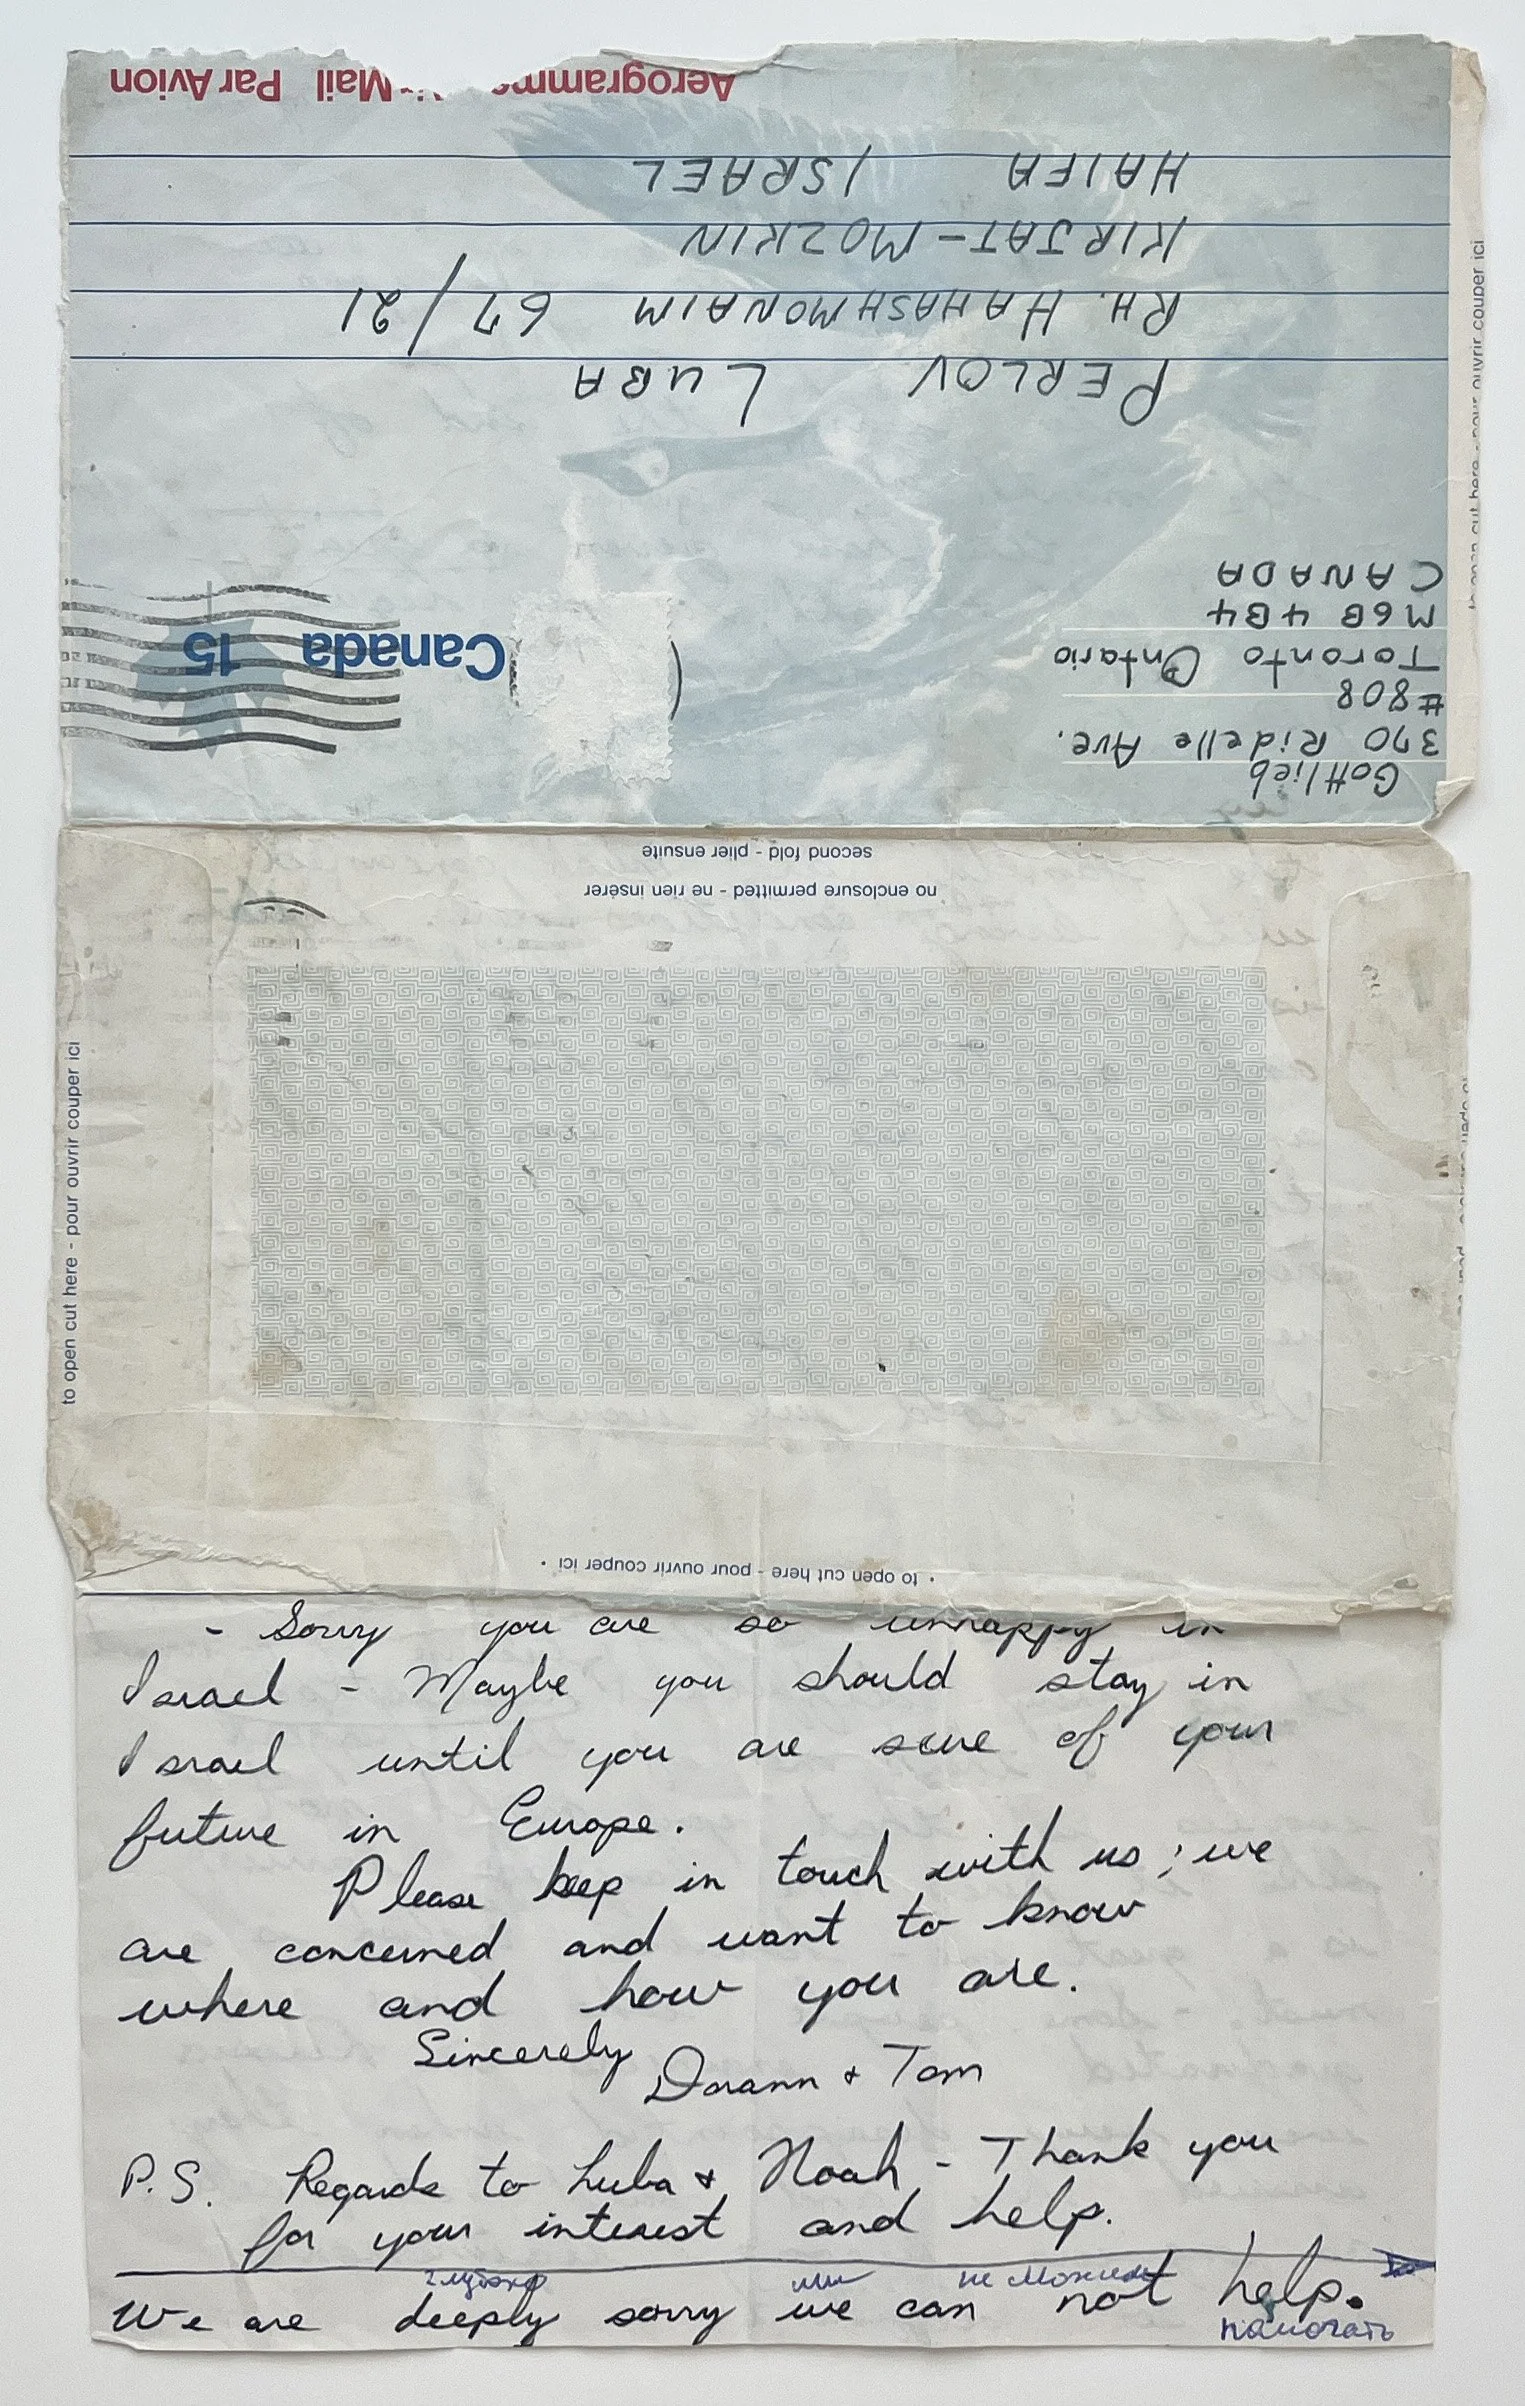 Aerogramme Air Mail Par Avion
HAIFA ISRAEL
KIRJAT-MOZKIN
RH. HAHASHMONAIM 67/21
PERLOV LUBA
Canada 15
Gottlieb
370 Ridelle Ave.
#808
Toronto Ontario
M6B 4B4
CANADA
to open cut here - pour ouvrir couper ici
second fold - plier ensuite
no enclosure permitted - ne rien insérer
to open cut here - pour ouvrir couper ici
• to open cut here - pour ouvrir couper ici •
- Sorry you are so unhappy in
Israel - Maybe you should stay in
Israel until you are sure of your
future in Europe.
Please keep in touch with us; we
are concerned and want to know
where and how you are.
Sincerely
Doann + Tom
P.S. Regards to Luba + Noah - Thank you
for your interest and help.
глубоко мы не можем
We are deeply sorry we can not help.
помогать